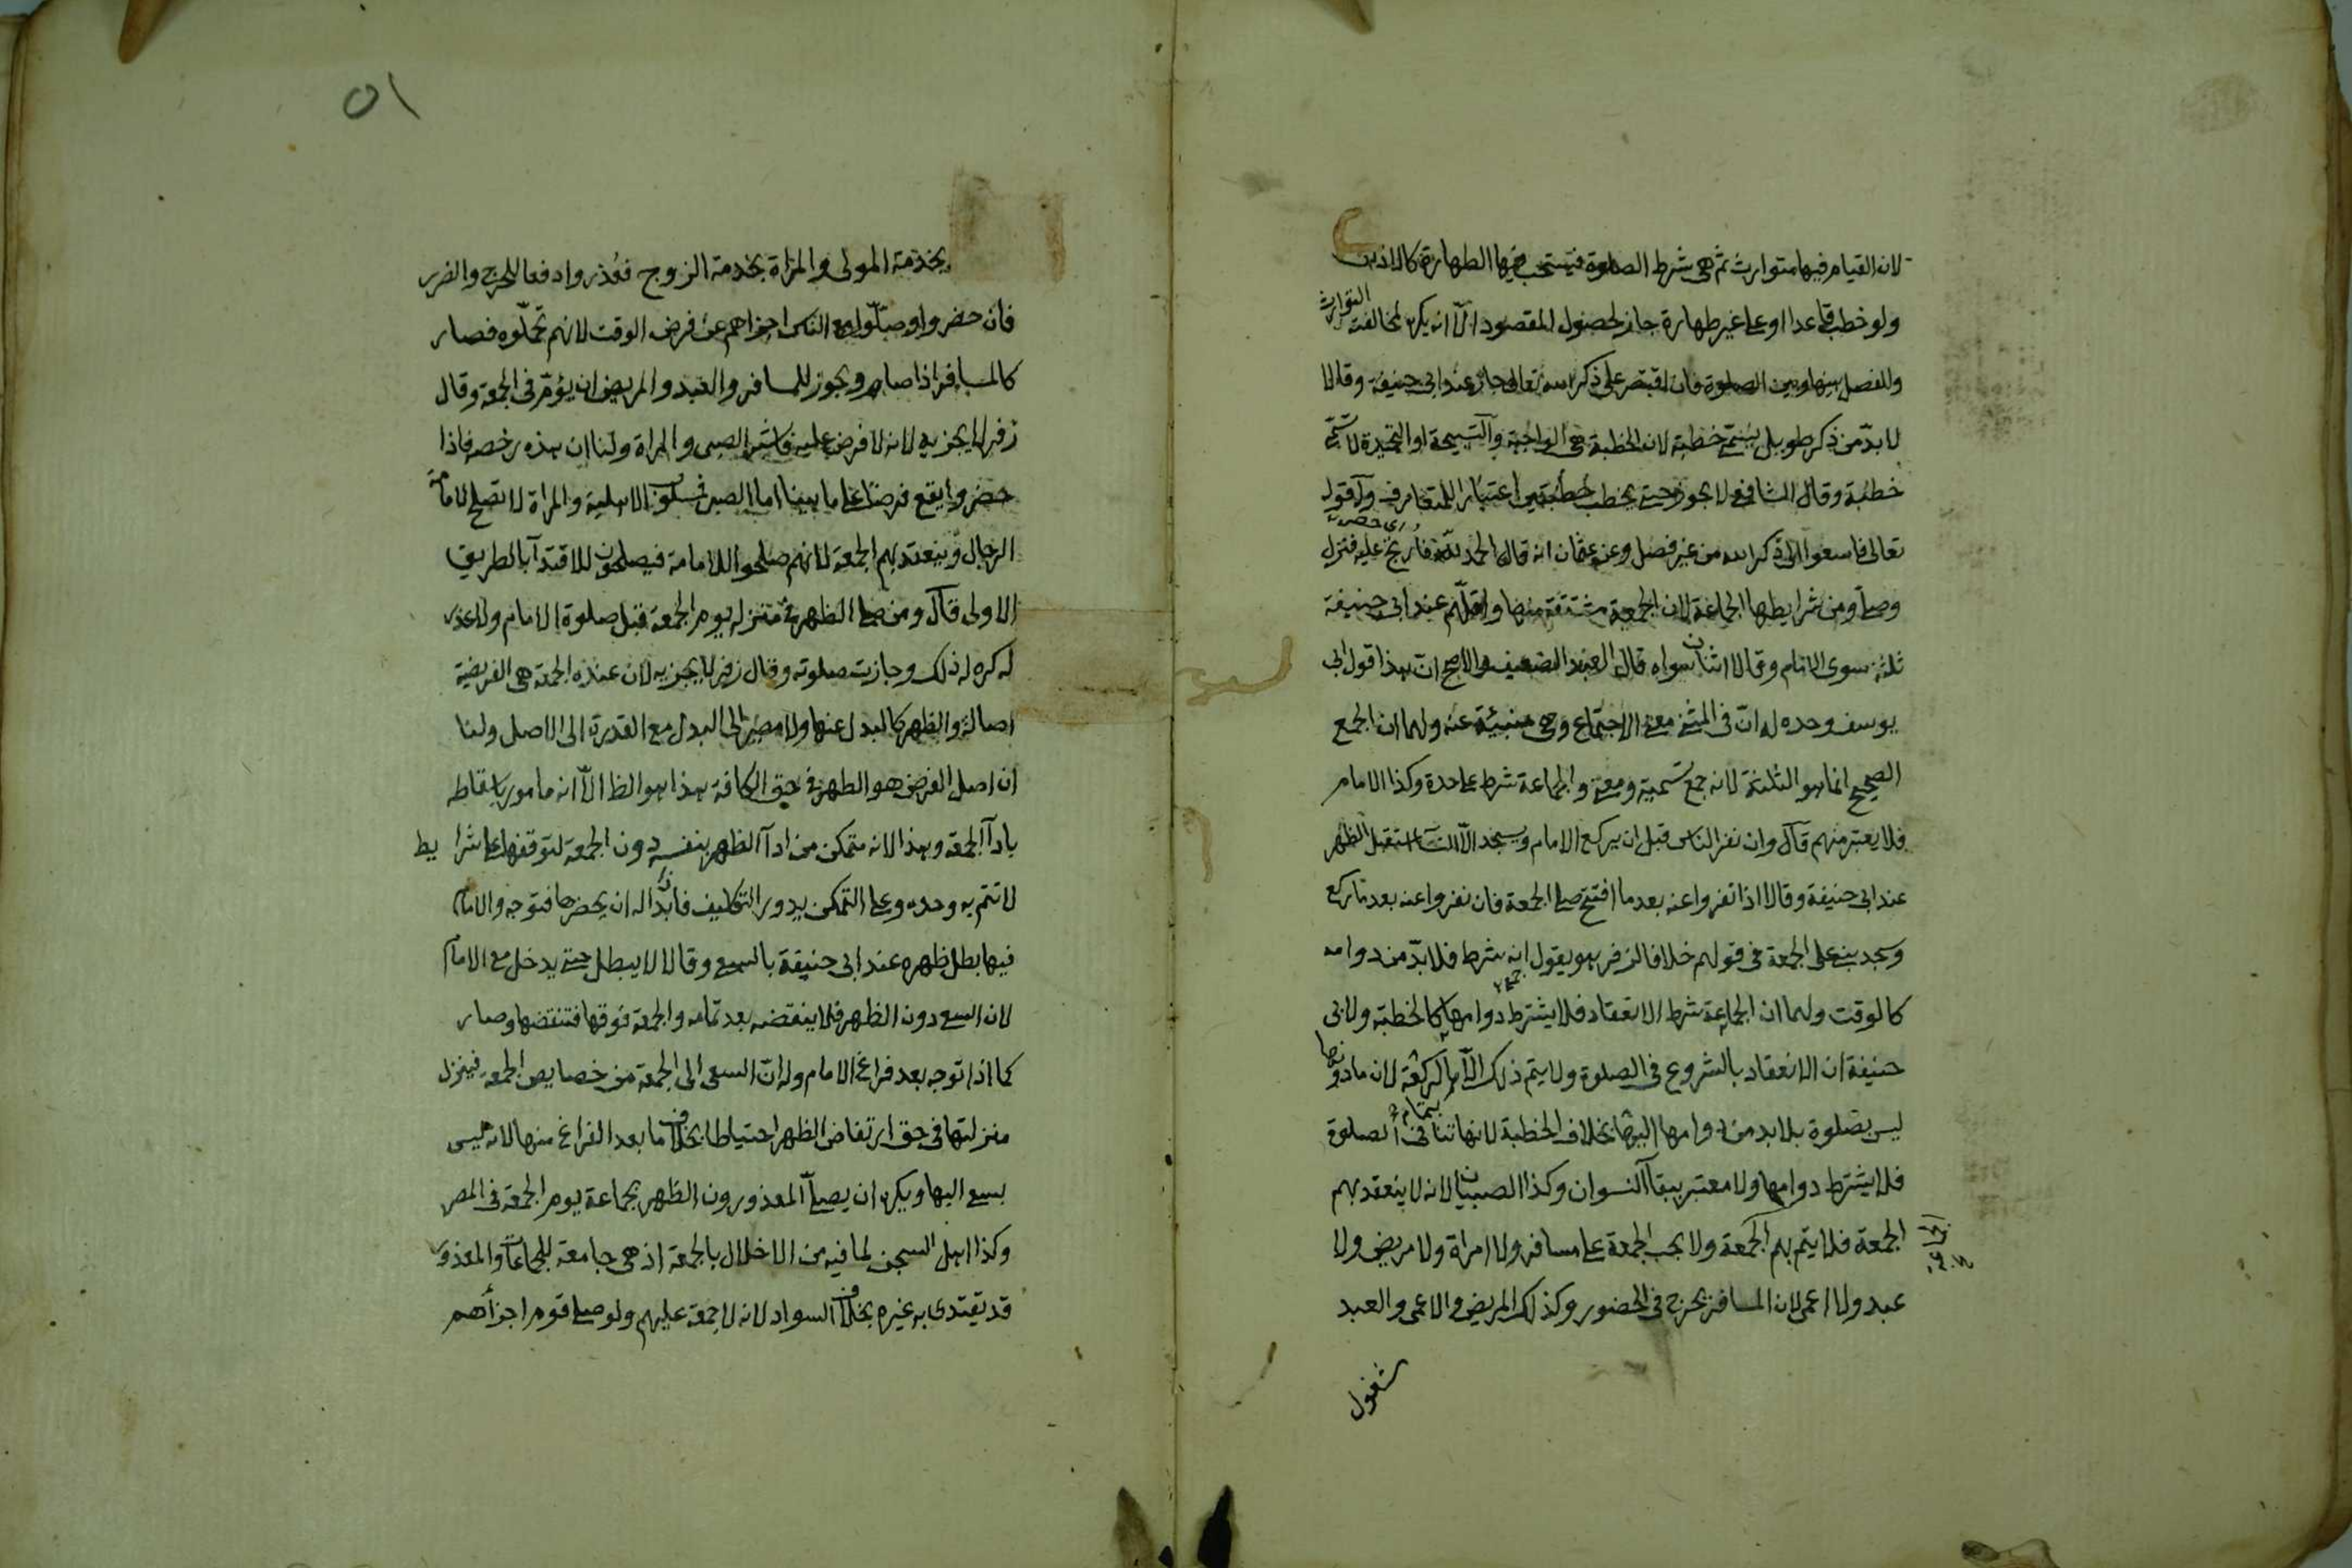 لان القيام فيها متوارث ثم هى شرط الصلوة فيستحب فيها الطهارة كالاذان
ولو خطب قاعدا او على غير طهارة جاز لحصول المقصود الّا انه يكره لمخالفته التوارث
وللفصل بينها وبين الصلوة فان اقتصر على ذكر الله تعالى جاز عند ابى حنيفة وقالا
لا بدّ من ذكر طويل يسمّى خطبة لان الخطبة هى الواجبة والتسبيحة او التحميدة لا تسمّى
خطبة وقال الشافعى لا يجوز حتى يخطب خطبتين اعتبارا للمتعارف وله قوله
تعالى فاسعوا الى ذكر الله من غير فصل وعن عثمان انه قال الحمد للّه فارتج عليه فنزل
وصلى ومن شرايطها الجماعة لان الجمعة مشتقة منها واقلّهم عند ابى حنيفة
ثلثة سوى الامام وقالا اثنان سواه قال العبد الضعيف والاصح انّ هذا قول ابى
يوسف وحده له انّ فى المثنى معنى الاجتماع وهى منبئة عنه ولهما ان الجمع
الصحيح انما هو الثلثة لانه جمع تسمية ومعنى والجماعة شرط على حدة وكذا الامام
فلا يعتبر منهم قال وان نفر الناس قبل ان يركع الامام ويسجد الّا النسآء استقبل الظهر
عند ابى حنيفة وقالا اذا نفروا عنه بعد ما افتتح صلى الجمعة فان نفروا عنه بعد ما ركع
وسجد بنى على الجمعة فى قولهم خلافا لزفر هو يقول انه شرط فلا بدّ من دوامه
كالوقت ولهما ان الجماعة شرط الانعقاد فلا يشترط دوامها كالخطبة ولابى
حنيفة ان الانعقاد بالشروع فى الصلوة ولا يتم ذلك الّا بتمام الركعة لان ما دونها
ليس بصلوة بلا بد من دوامها اليها بخلاف الخطبة لانها تنافى الصلوة
فلا يشترط دوامها ولا معتبر ببقآ النسوان وكذا الصبيان لانه لا ينعقد بهم
الجمعة فلا يتم بهم الجمعة ولا يجب الجمعة على مسافر ولا امراة ولا مريض ولا
عبد ولا اعمى لان المسافر يحرج فى الحضور وكذلك المريض والاعمى والعبد
مشغول
٥١
بخدمة المولى والمراة بخدمة الزوج فعُذروا دفعا للحرج والضرر
فان حضروا وصلّوا مع الناس اجزاهم عن فرض الوقت لانهم تحمّلوه فصار
كالمسافر اذا صام ويجوز للمسافر والعبد والمريض ان يؤمّ فى الجمعة وقال
زفر لا يجزيه لانه لا فرض عليه فاشبه الصبى والمراة ولنا ان هذه رخصة فاذا
حضروا يقع فرضا على ما بينا اما الصبى فمسلوب الاهلية والمراة لا تصلح لامامة
الرجال وينعقد بهم الجمعة لانهم صلحوا للامامة فيصلحون للاقتدآ بالطريق
الاولى قال ومن صلى الظهر فى منزله يوم الجمعة قبل صلوة الامام ولا عذر
له كره له ذلك وجازت صلوته وقال زفر لا يجزيه لان عنده الجمعة هى الفريضة
اصالة والظهر كالبدل عنها ولا مصير الى البدل مع القدرة الى الاصل ولنا
ان اصل الفرض هو الظهر فى حق الكافة هذا هو الظ الّا انه مامور باسقاطه
بادآ الجمعة وهذا لانه متمكن من ادآ الظهر بنفسه دون الجمعة لتوقفها على شرايط
لا تتم به وحده وعلى التمكن يدور التكليف فان بدا له ان يحضرها فتوجه والامام
فيها بطل ظهره عند ابى حنيفة بالسعى وقالا لا يبطل حتى يدخل مع الامام
لان السعى دون الظهر فلا ينقضه بعد تمامه والجمعة فوقها فتنقضها وصار
كما اذا توجه بعد فراغ الامام وله انّ السعى الى الجمعة من خصايص الجمعة فينزل
منزلتها فى حق ارتفاض الظهر احتياطا بخلاف ما بعد الفراغ منها لانه ليس
بسعى اليها ويكره ان يصلّى المعذورون الظهر بجماعة يوم الجمعة فى المصر
وكذا اهل السجن لما فيه من الاخلال بالجمعة اذ هى جامعة للجماعات والمعذور
قد يقتدى به غيره بخلاف السواد لانه لا جمعة عليهم ولو صلى قوم اجزأهم